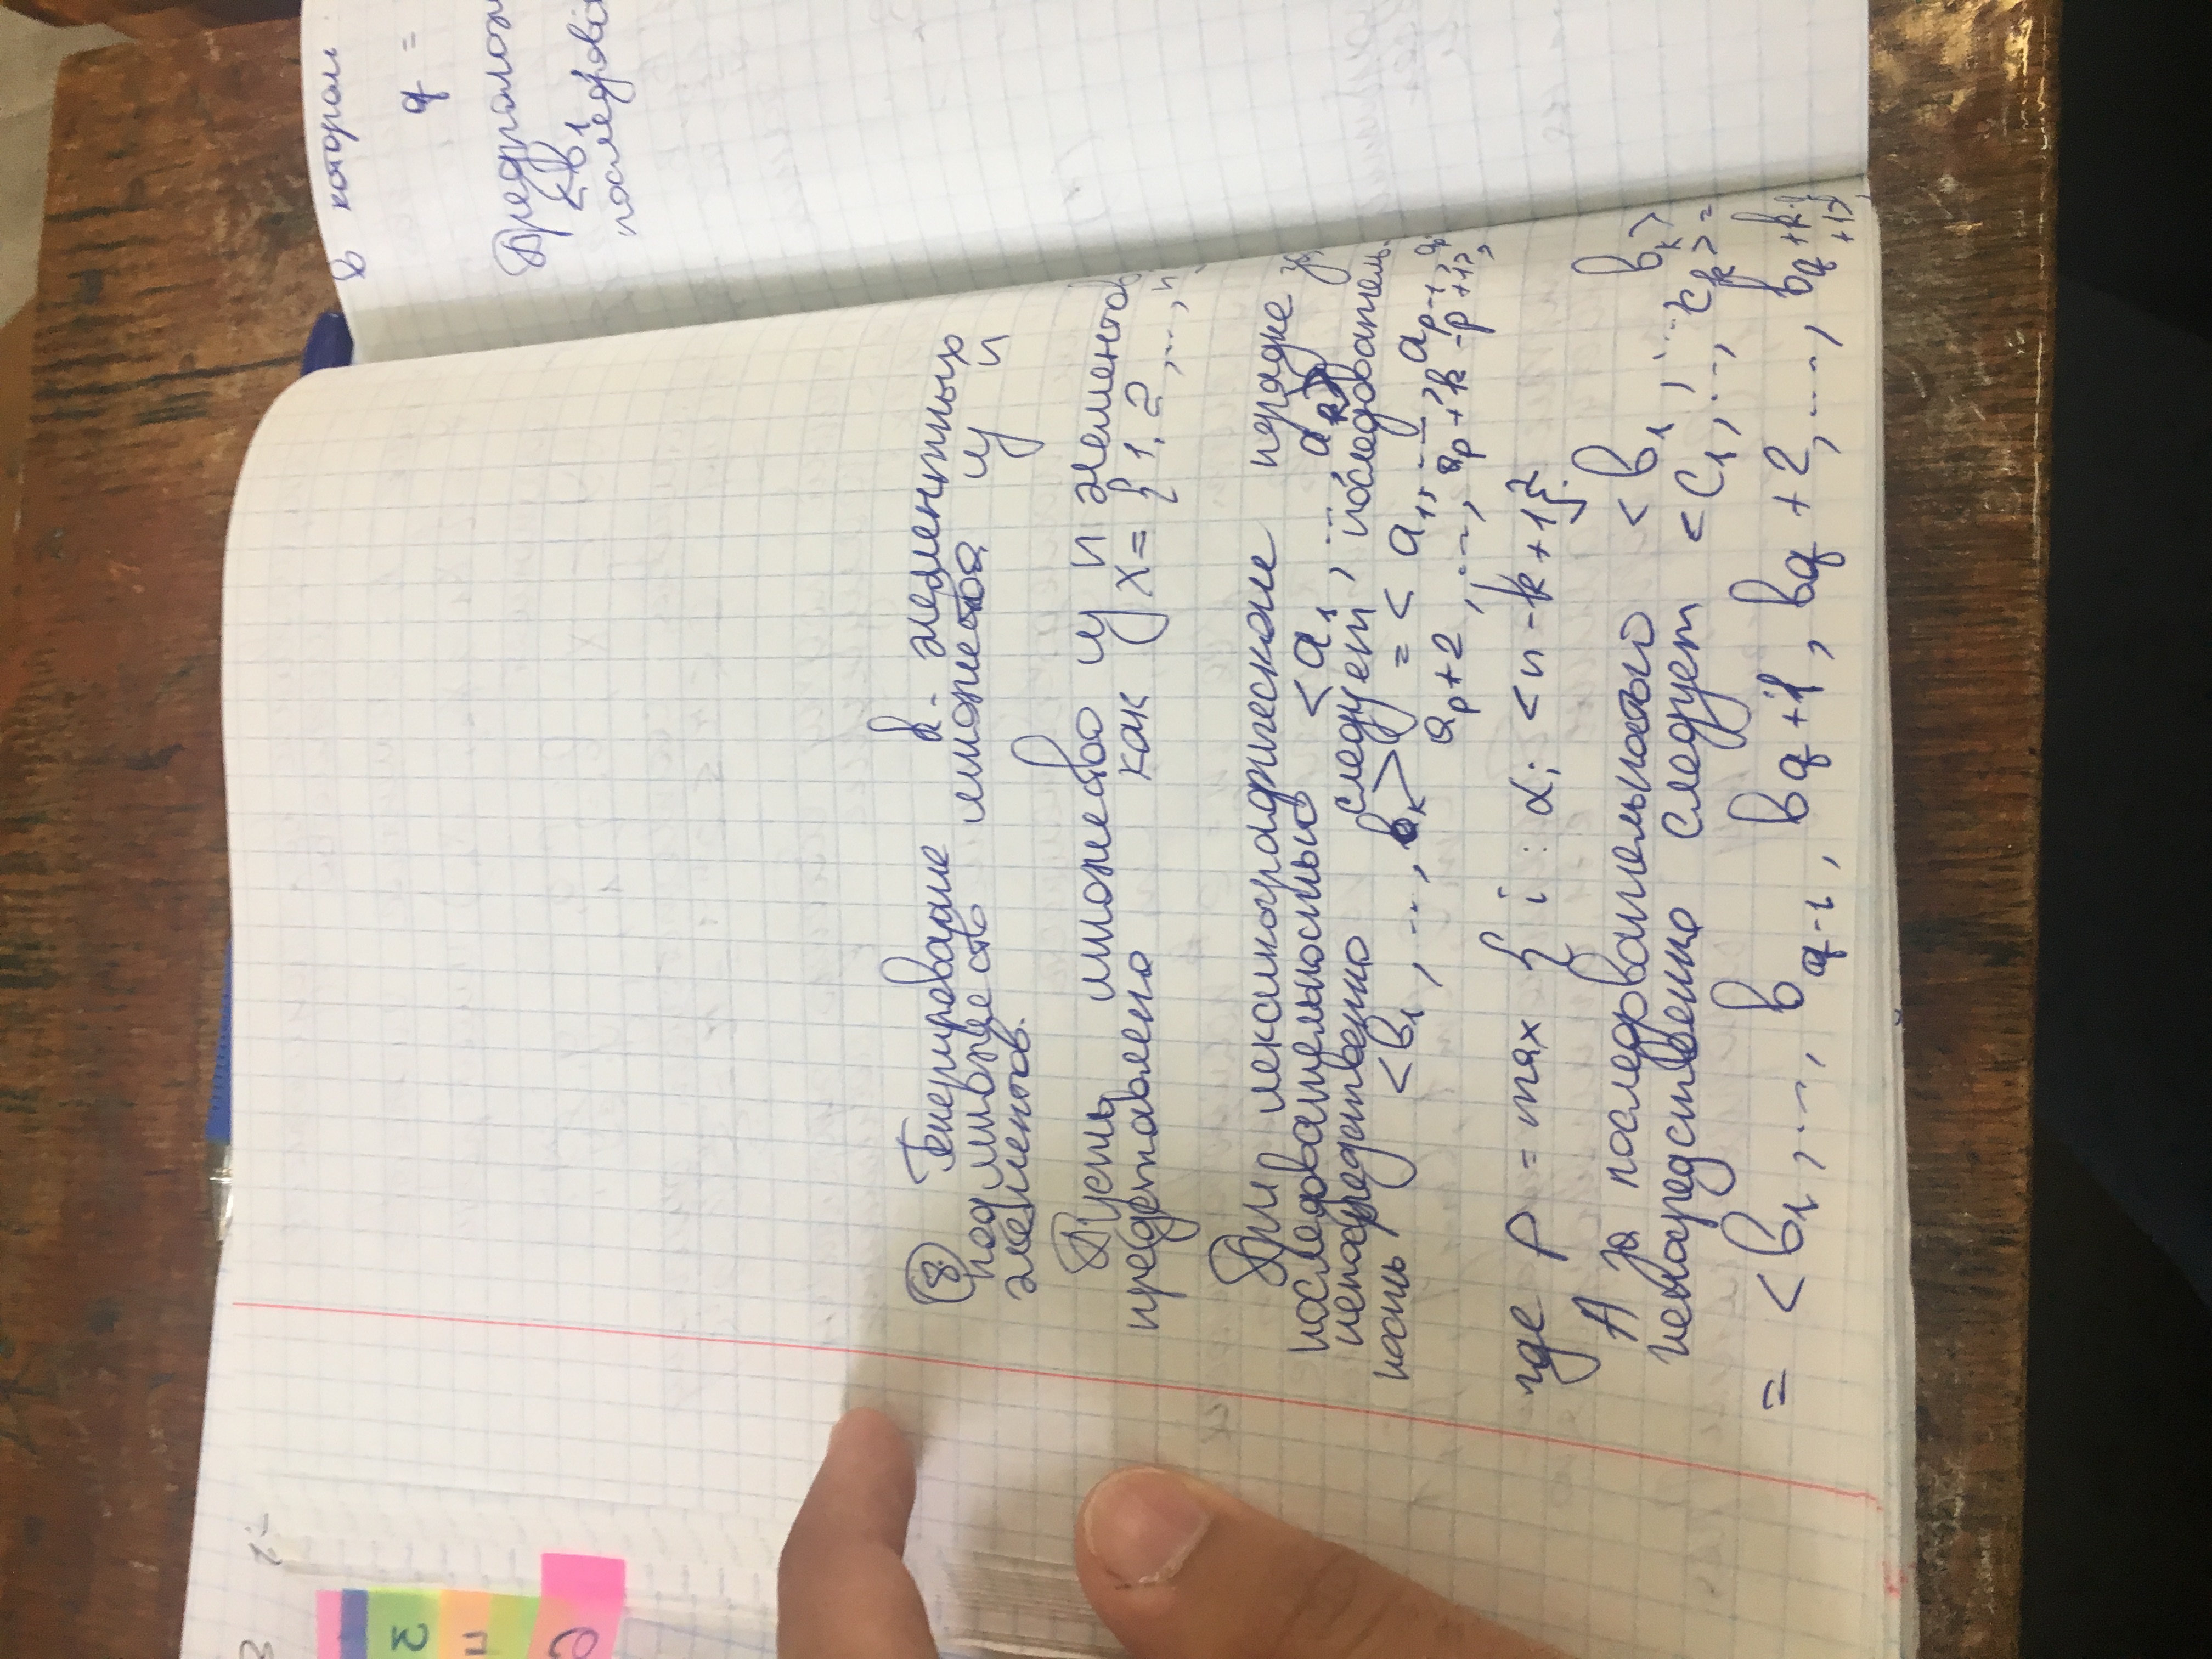 ⑧ Генерирование k-элементных
подмножеств множества из n
элементов.
Пусть множество из n элементов
представлено как X = {1, 2, ..., n
При лексикографическом порядке за
последовательностью <a₁, ..., aₖ>
непосредственно следует последователь-
ность <b₁, ..., bₖ> = < a₁, ..., aₚ₋₁, aₚ
aₚ+2, ..., aₚ+k-p+1>,
где p = max { i : αᵢ < n-k+1}.
А за последовательностью <b₁, ..., bₖ>
непосредственно следует <c₁, ..., cₖ> =
= <b₁, ..., b_q-1, b_q+1, b_q+2, ..., b_q+k-
+1>,
в котором
q =
Предполож
<b₁,
последова
3
4
6